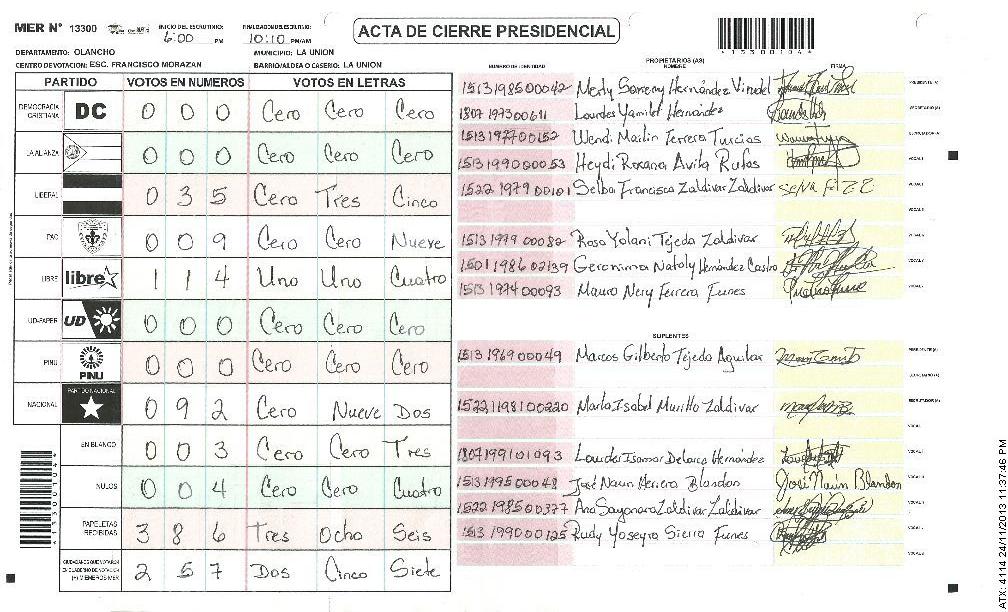 MER Nº 13300
INICIO DEL ESCRUTINIO: 6:00 PM
FINALIZACION DEL ESCRUTINIO: 10:10 PM/AM
ACTA DE CIERRE PRESIDENCIAL
*13300104*
DEPARTAMENTO: OLANCHO
MUNICIPIO: LA UNION
CENTRO DE VOTACION: ESC. FRANCISCO MORAZAN
BARRIO/ALDEA O CASERIO: LA UNION
PARTIDO VOTOS EN NUMEROS VOTOS EN LETRAS
DEMOCRACIA CRISTIANA DC 0 0 0 Cero Cero Cero
LA ALIANZA 0 0 0 Cero Cero Cero
LIBERAL 0 3 5 Cero Tres Cinco
PAC 0 0 9 Cero Cero Nueve
LIBRE libre 1 1 4 Uno Uno Cuatro
UD-FAPER UD 0 0 0 Cero Cero Cero
PINU PINU 0 0 0 Cero Cero Cero
NACIONAL PARTIDO NACIONAL 0 9 2 Cero Nueve Dos
EN BLANCO 0 0 3 Cero Cero Tres
NULOS 0 0 4 Cero Cero Cuatro
PAPELETAS RECIBIDAS 3 8 6 Tres Ocho Seis
CIUDADANOS QUE VOTARON EN CUADERNO DE VOTACION (+) MIEMBROS MER 2 5 7 Dos Cinco Siete
*13300104*
PROPIETARIOS (AS)
NUMERO DE IDENTIDAD NOMBRE FIRMA
1513198500042 Merly Hernández PRESIDENTE (A)
1807197300611 Lourdes Yamilet Hernández SECRETARIO (A)
1513197700152 Wendi Mailin Ferrera Turcios ESCRUTADOR (A)
1513199000053 Heydi Roxana Avila Rufas VOCAL I
1522197900101 Selba Francisca Zaldivar Zaldivar
1513197900082 Rosa Yolani Tejeda Zaldivar
1501198602139 Geronima Nataly Hernández Castro
1513197400093 Mauro Nery Ferrera Funes
SUPLENTES
1513196900049 Marcos Gilberto Tejeda Aguilar PRESIDENTE (A)
SECRETARIO (A)
1522198100220 Marla Isabel Murillo Zaldivar ESCRUTADOR (A)
1807199101093 Lourdes Isamar Hernández
1513199500048 José Naun Herrera Blandon José Naún Blandon
1522198500377 Ana Sayonara Zaldivar Zaldivar
1513199000125 Rudy Yoseyra Sierra Funes
ATX: 4114 24/11/2013 11:37:46 PM